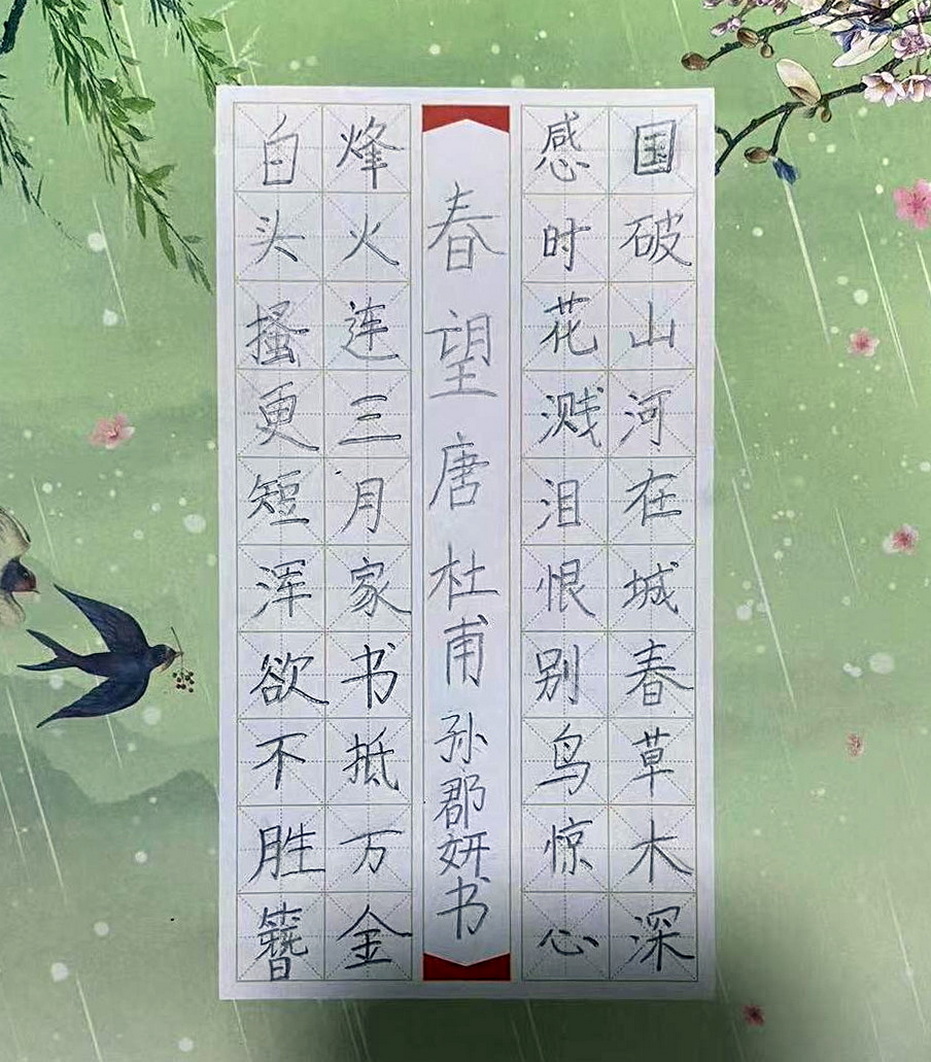 国破山河在城春草木深
感时花溅泪恨别鸟惊心
春望唐杜甫孙郡妍书
烽火连三月家书抵万金
白头搔更短浑欲不胜簪